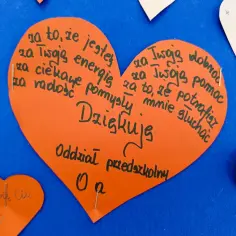 za to, że jesteś
za Twoją energię
za ciekawe pomysły
za radość
za Twoją dobroć
za Twoją pomoc
za to, że potrafisz
mnie słuchać
Dziękuję
Oddział przedszkolny
O a